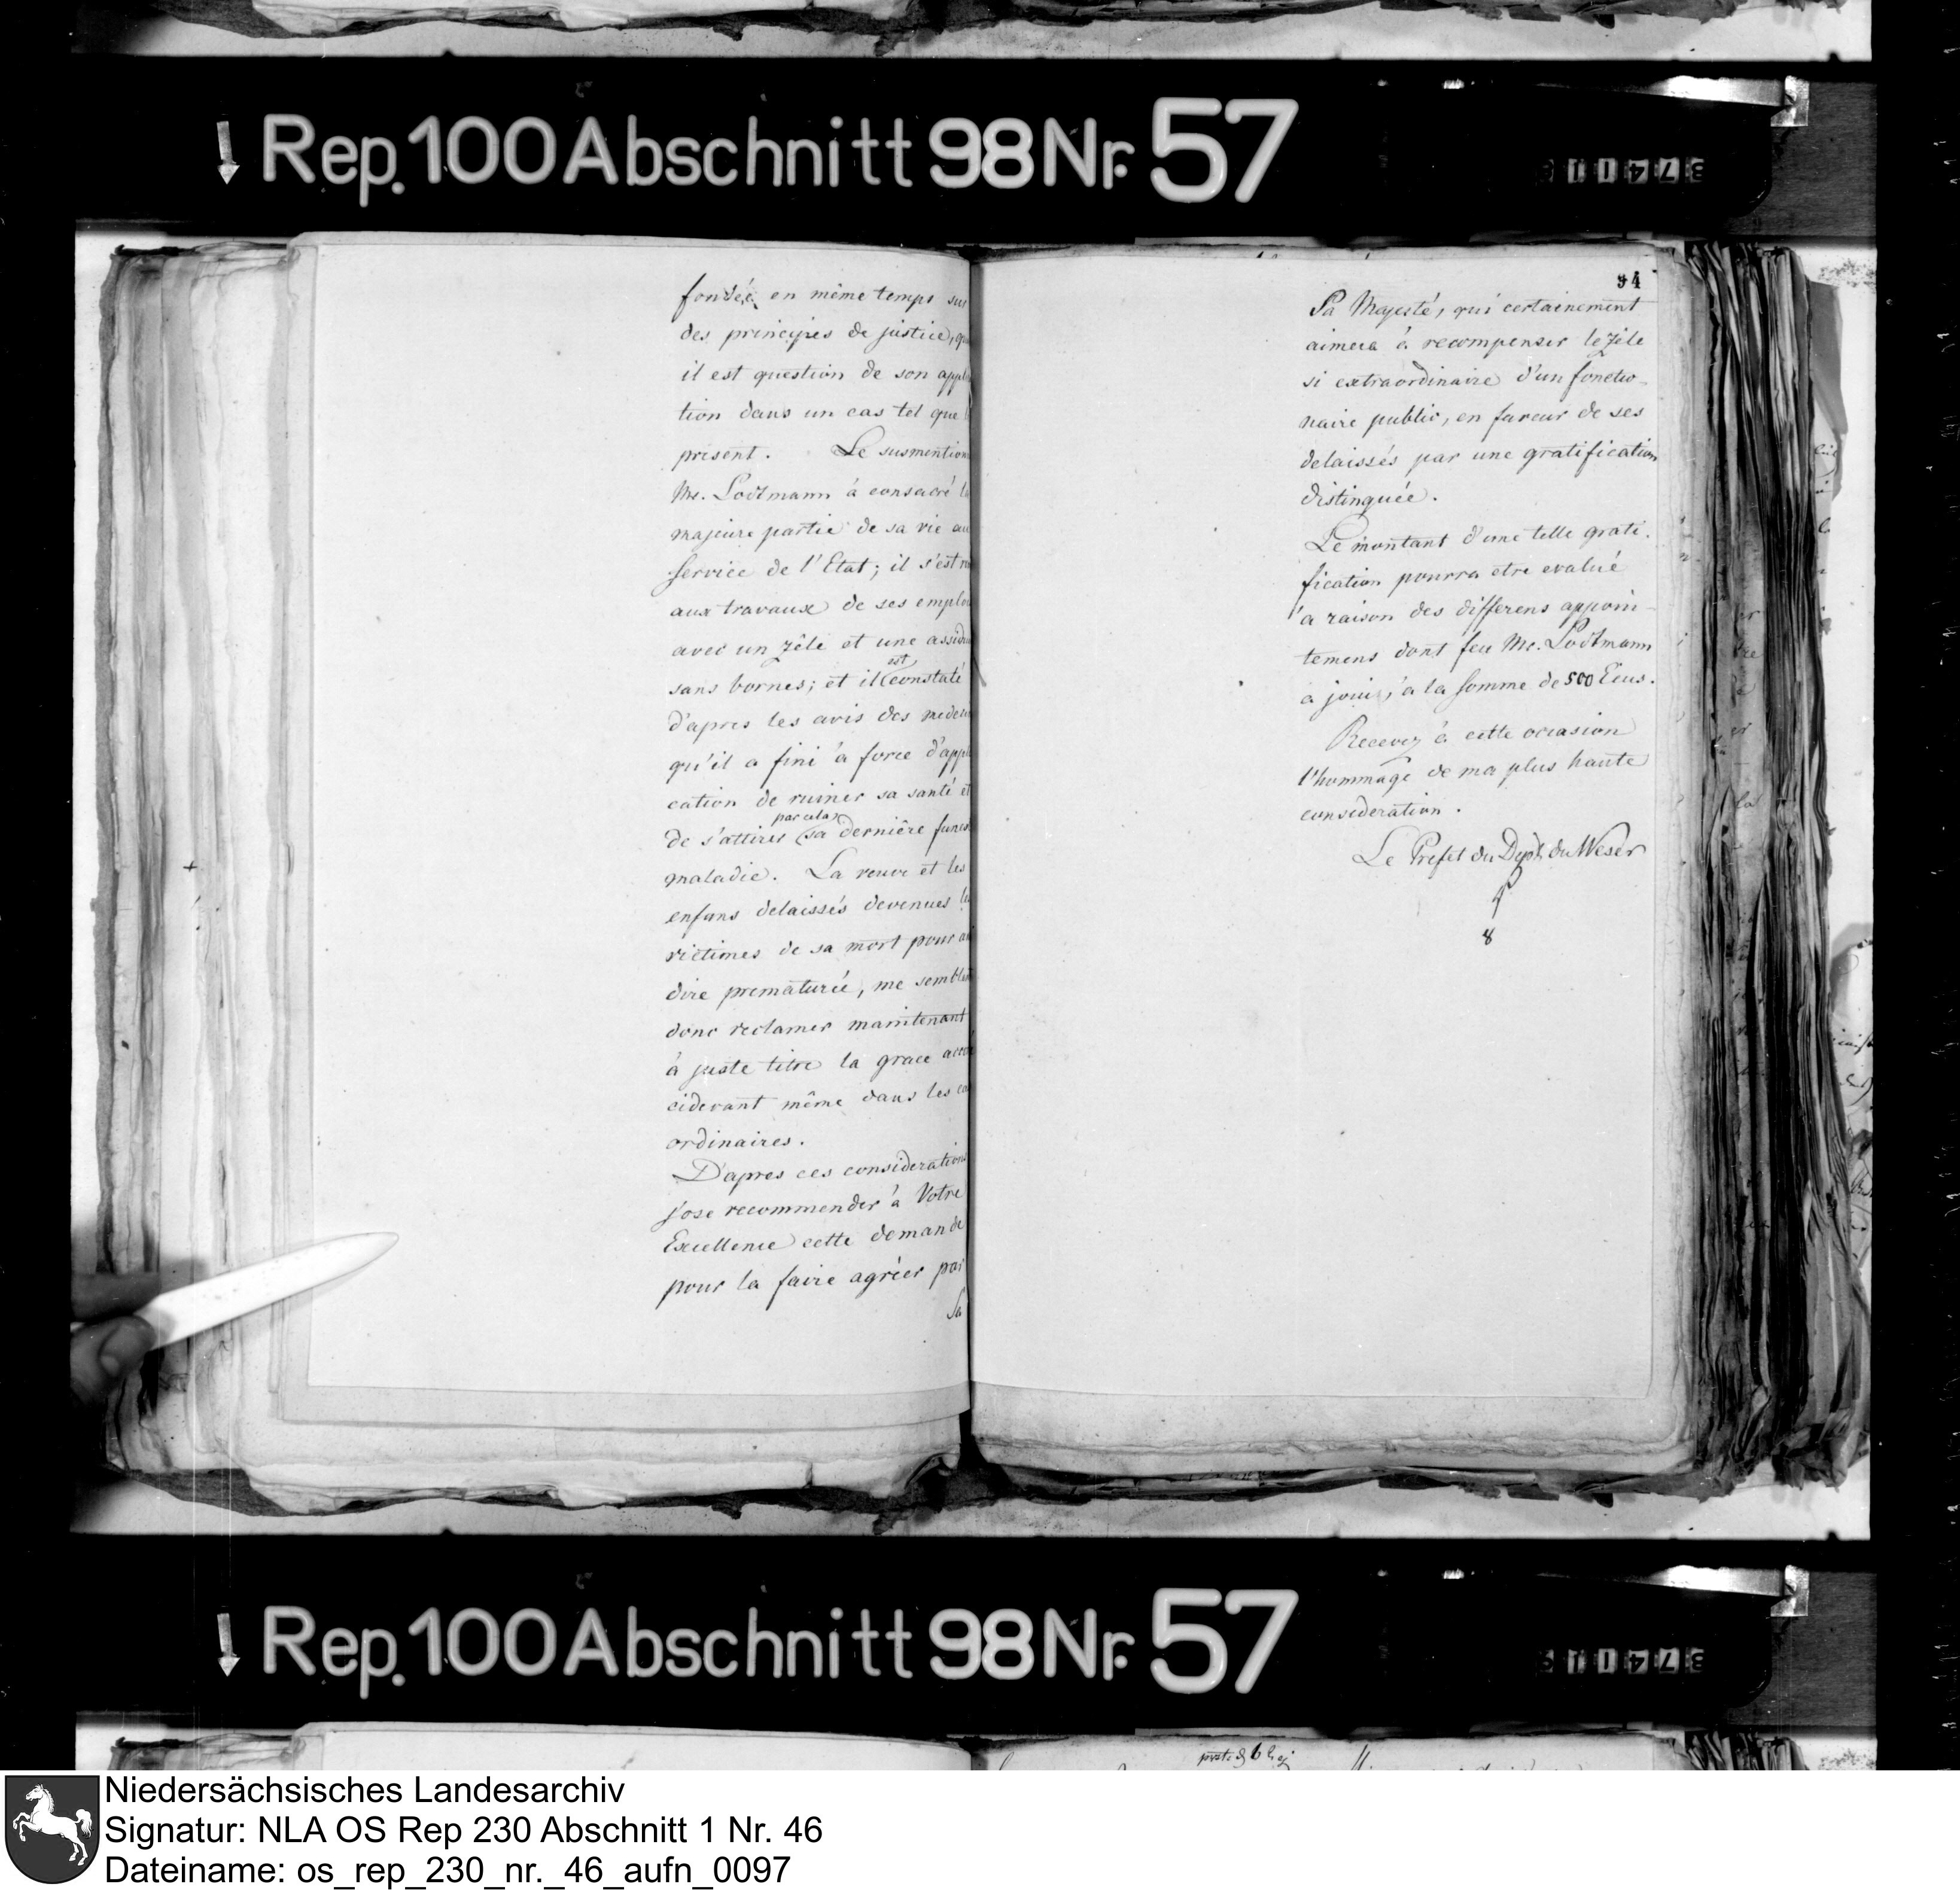 Rep. 100 Abschnitt 98 Nr. 57
fondée en même temps sur
des principes de justice,
il est question de son
tion dans un cas tel que
présent. Le susmention
Mr. Lodtmann à consacré
majeure partie de sa vie au
service de l'Etat; il s'est
aux travaux de ses emplo
avec un zêle et une assidu
est
sans bornes; et il constaté
d'apres les avis des medeci
qu'il a fini à force d'appli
cation de ruiner sa santé et
par cela
de s'attirer sa dernière funes
maladie. La veuve et les
enfans delaissés devenues
victimes de sa mort pour
dire prematurée, me semblent
donc reclamer maintenant
à juste titre la grace
cidevant même dans les ca
ordinaires.
D'apres ces considerations
j'ose recommender à Votre
Excellence cette demande
pour la faire agréer par
Sa
34
Sa Majesté, qui certainement
aimera à recompenser le zêle
si extraordinaire d'un fonctio-
naire public, en faveur de ses
delaissés par une gratification
distinguée.
Le montant d'une telle grati-
fication pourra etre evalué
à raison des differens appoin-
temens dont feu Mr. Lodtmann
a joui, à la somme de 500 Ecus.
Recevez à cette occasion
l'hommage de ma plus haute
consideration.
Le Prefet du Dept. du Weser
8
Rep. 100 Abschnitt 98 Nr. 57
Niedersächsisches Landesarchiv
Signatur: NLA OS Rep 230 Abschnitt 1 Nr. 46
Dateiname: os_rep_230_nr._46_aufn_0097